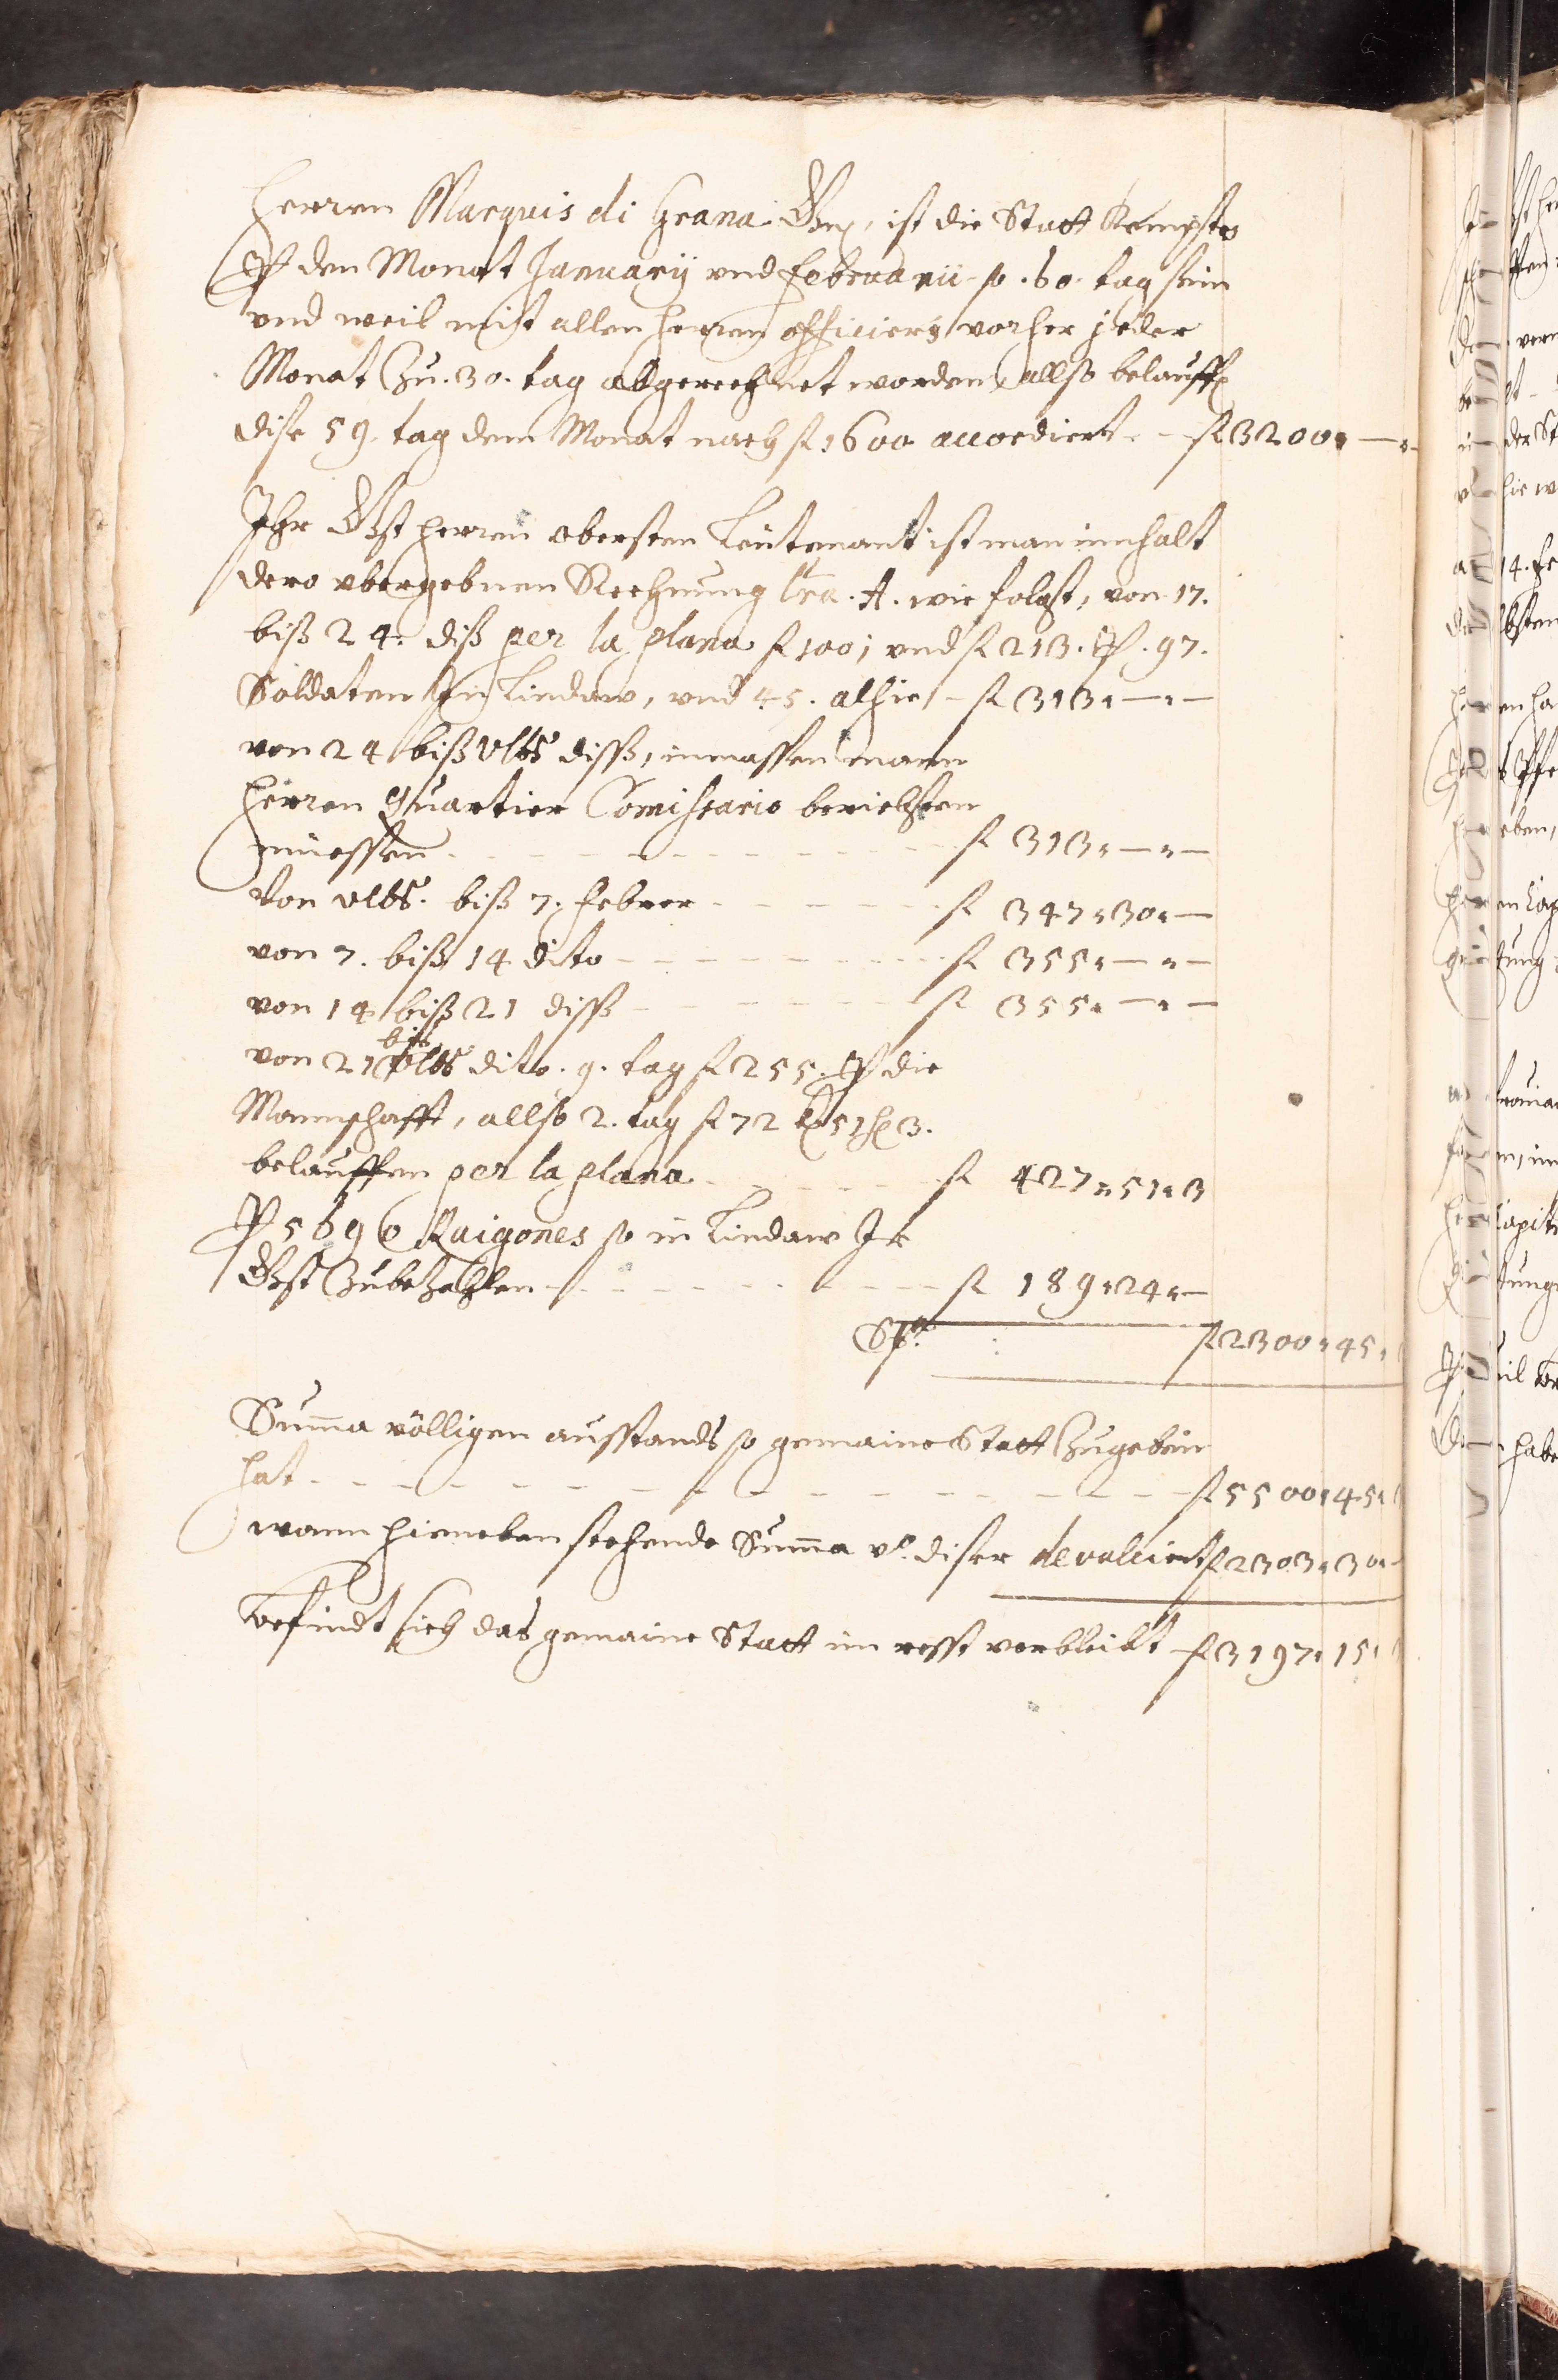 Herren Marquis di Grana Gn, ist die Statt Kempten
Pr den Monat Januarÿ vnd Februarii so 60. tag sein
vnd weil mist allen herren officiers vorher jeder
Monat Zu. 30. tag abgerechnet worden, allso belauff
dise 59. tag dem Monat nach fl 1600 accordiert - fl 3200. —
Ihr Gst herren obersten Leütenant ist man innhalt
dero vbergebnen Rechnung Lra. A. wie folgt, von 17.
biß 24. diß per la plana fl 100; vnd fl 213. Pr. 97.
Soldaten in Lindaw, vnd 45. alhie - fl 313. — . —
von 24 biß vlts diß, inmassen mann
herren Quartier Comissario berichten
müessen - - - fl 313. — . —
Von vlts. biß 7. Febrer - - - fl 347. 30. —
von 7. biß 14 dito - - - fl 355. — . —
von 14 biß 21 diß - - - fl 355. — . —
von 21 biß vlts dito. 9. tag fl 255. Pr die
Mannschafft, allso 2. tag fl 72 x 51 h 3.
belauffen per la plana - - - fl 427. 51. 3
Pr 5696 Raigones so in Lindaw Ir
Gst Zubezahlen - - - fl 189. 24. —
Sa. fl 2300. 45.
Suma völligen ausstands so gemaine Statt Zugeben
hat - - - fl 5500. 45.
wann hieneben stehende Suma vo. diser devalciert fl 2303. 30.
befindt sich das gemaine Statt im rest verbleibt fl 3197. 15.